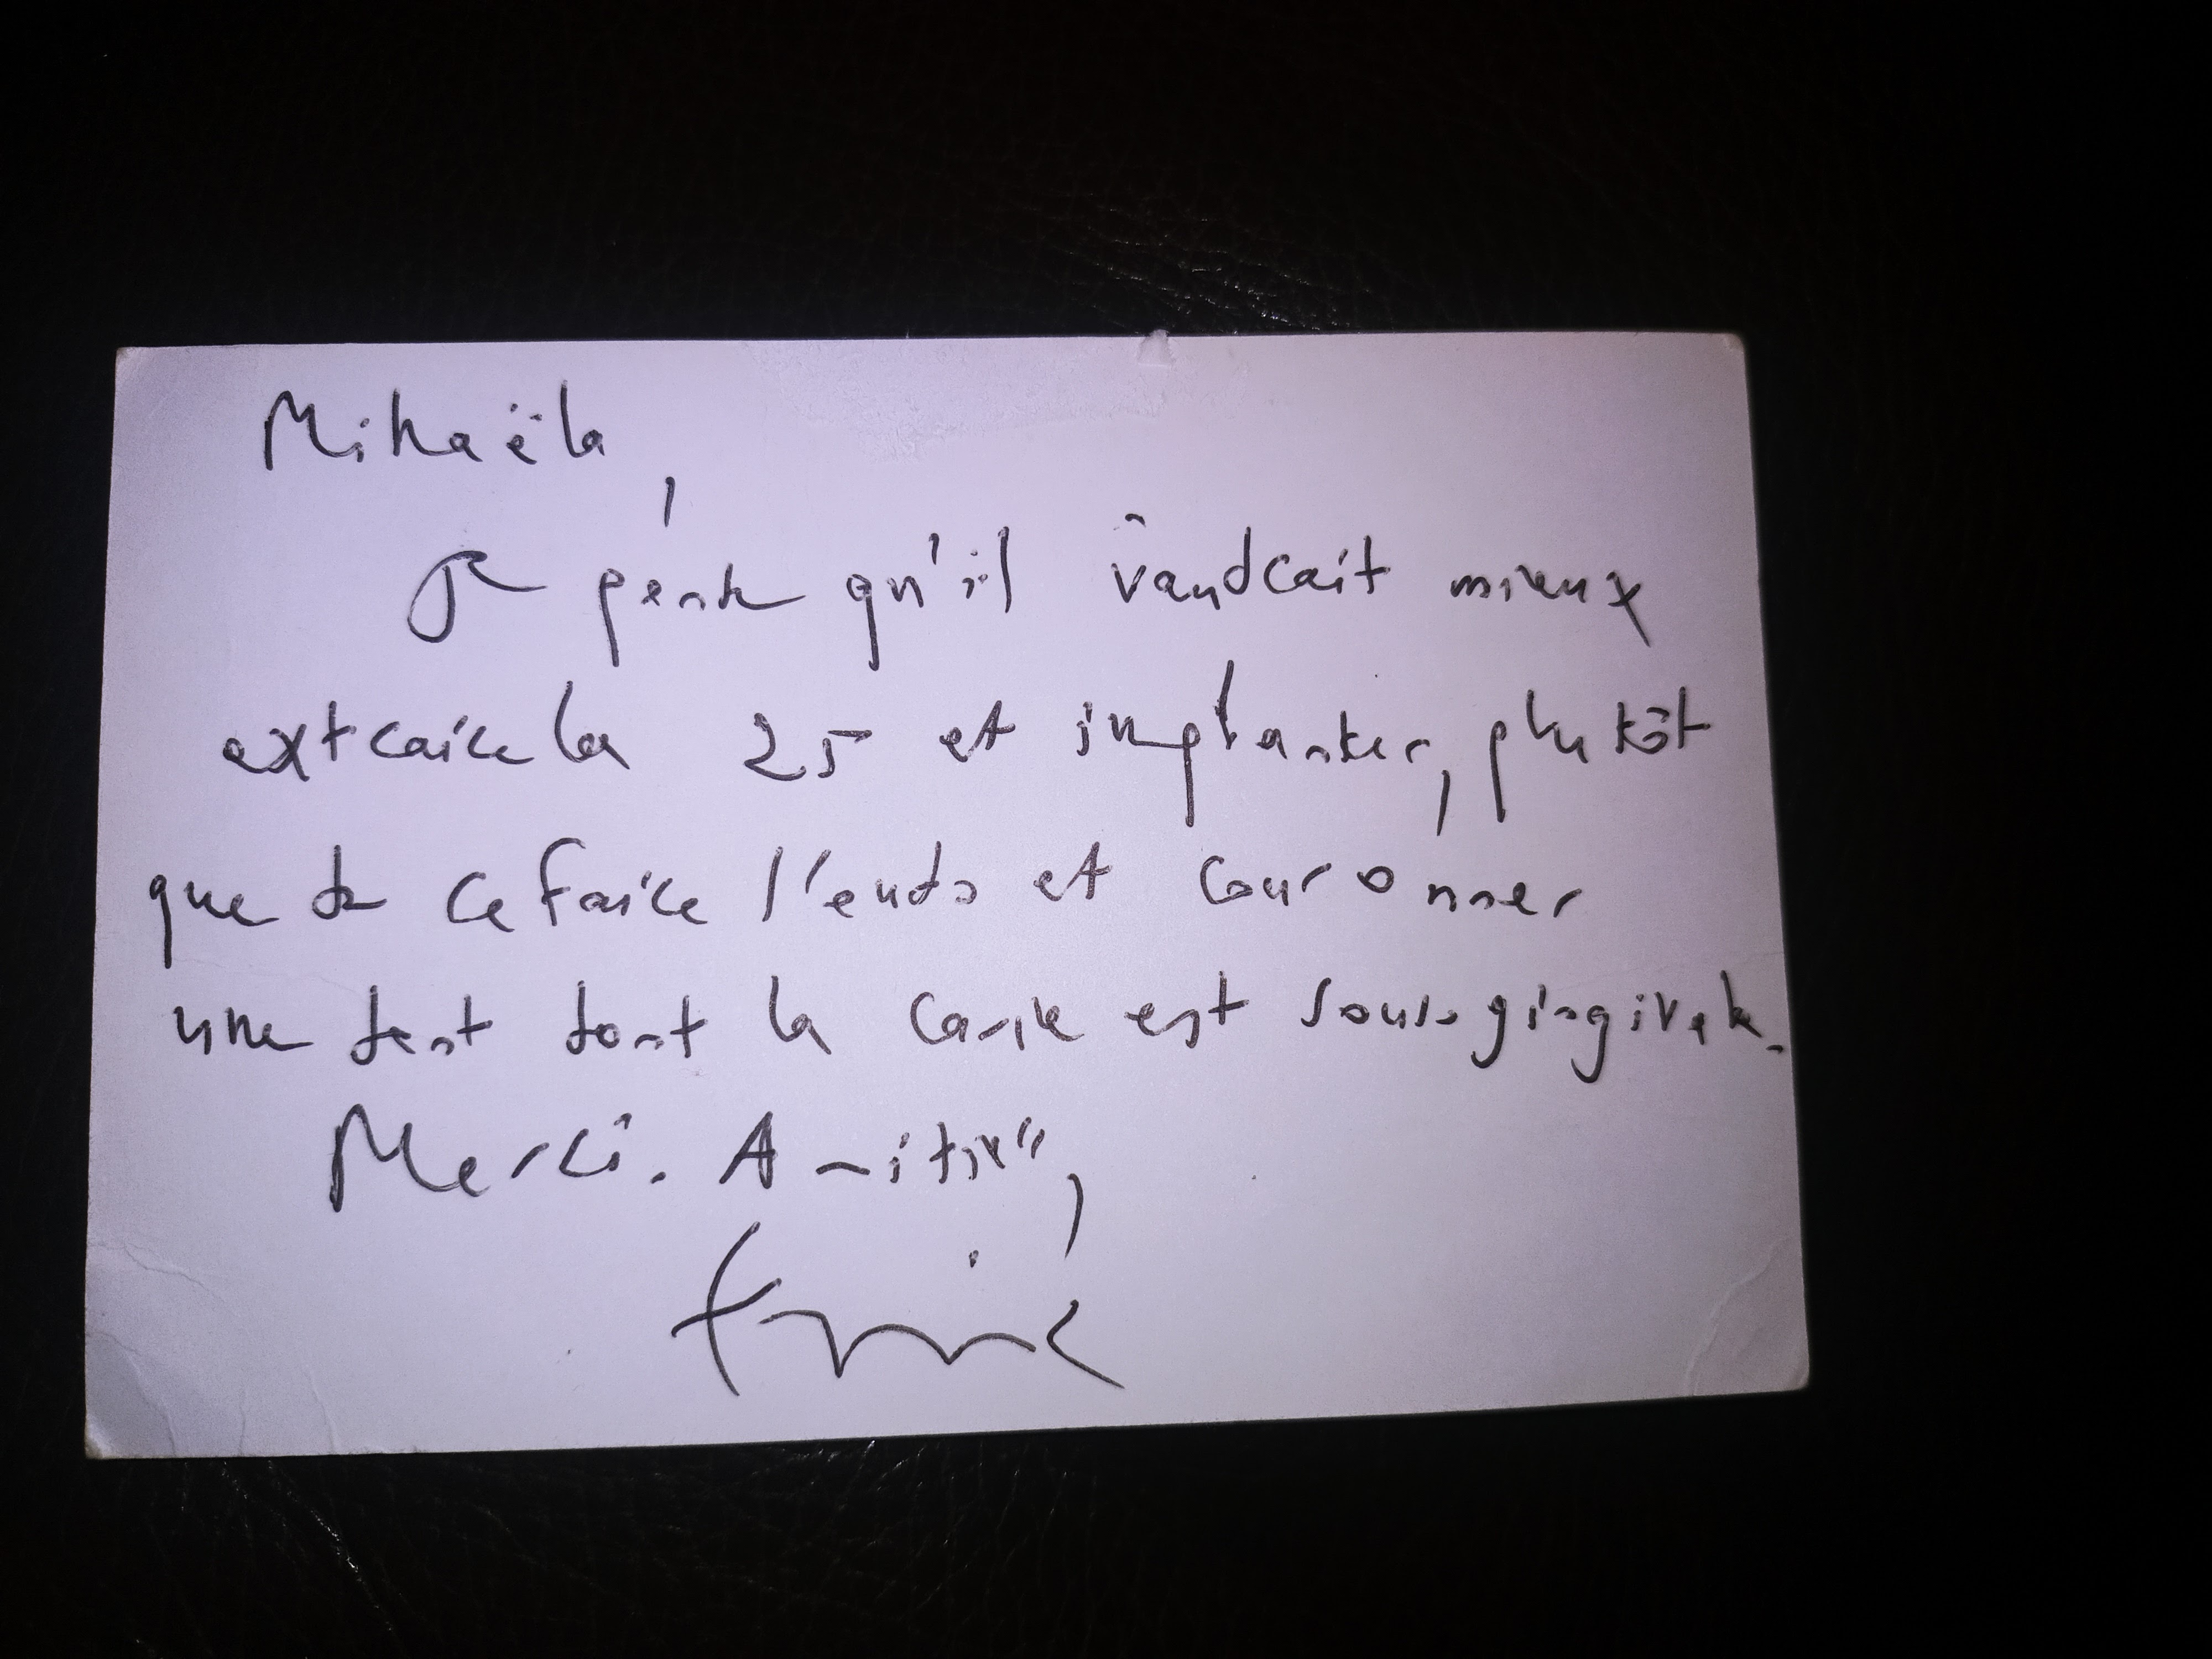 Mihaëla,
Je pense qu'il vaudrait mieux
extraire la 25 et implanter, plutôt
que de refaire l'endo et couronner
une dent dont la carie est sous-gingivale.
Merci. Amitiés,